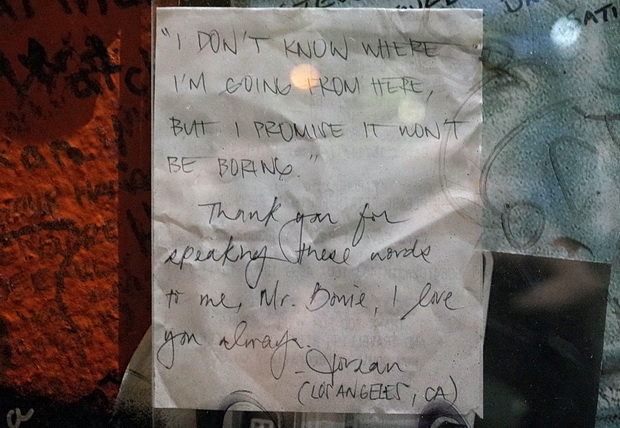 "I DON'T KNOW WHERE
I'M GOING FROM HERE,
BUT I PROMISE IT WON'T
BE BORING."
Thank you for
speaking these words
to me, Mr. Bowie, I love
you always.
- Jordan
(LOS ANGELES, CA)